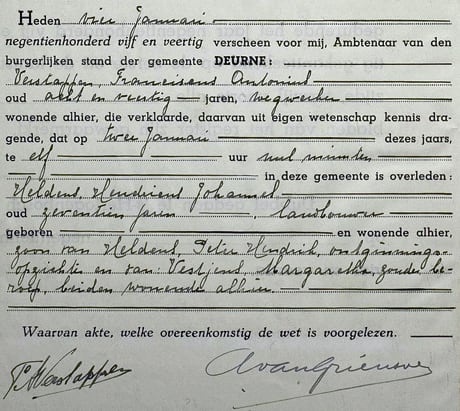 Heden vier Januari
negentienhonderd vijf en veertig verscheen voor mij, Ambtenaar van den
burgerlijken stand der gemeente DEURNE:
Verstappen, Franciscus Antonius
oud acht en veertig jaren, wegwerker
wonende alhier, die verklaarde, daarvan uit eigen wetenschap kennis dra-
gende, dat op twee Januari dezes jaars,
te elf uur nul minuten
in deze gemeente is overleden:
Heldens, Hendricus Johannes,
oud zeventien jaren, landbouwer
geboren en wonende alhier,
zoon van Heldens, Peter Hendrik, ontginnings-
opzichter en van: Vestjens, Margaretha, zonder be-
roep, beiden wonende alhier.
Waarvan akte, welke overeenkomstig de wet is voorgelezen.
Verstappen
AvanGriensven